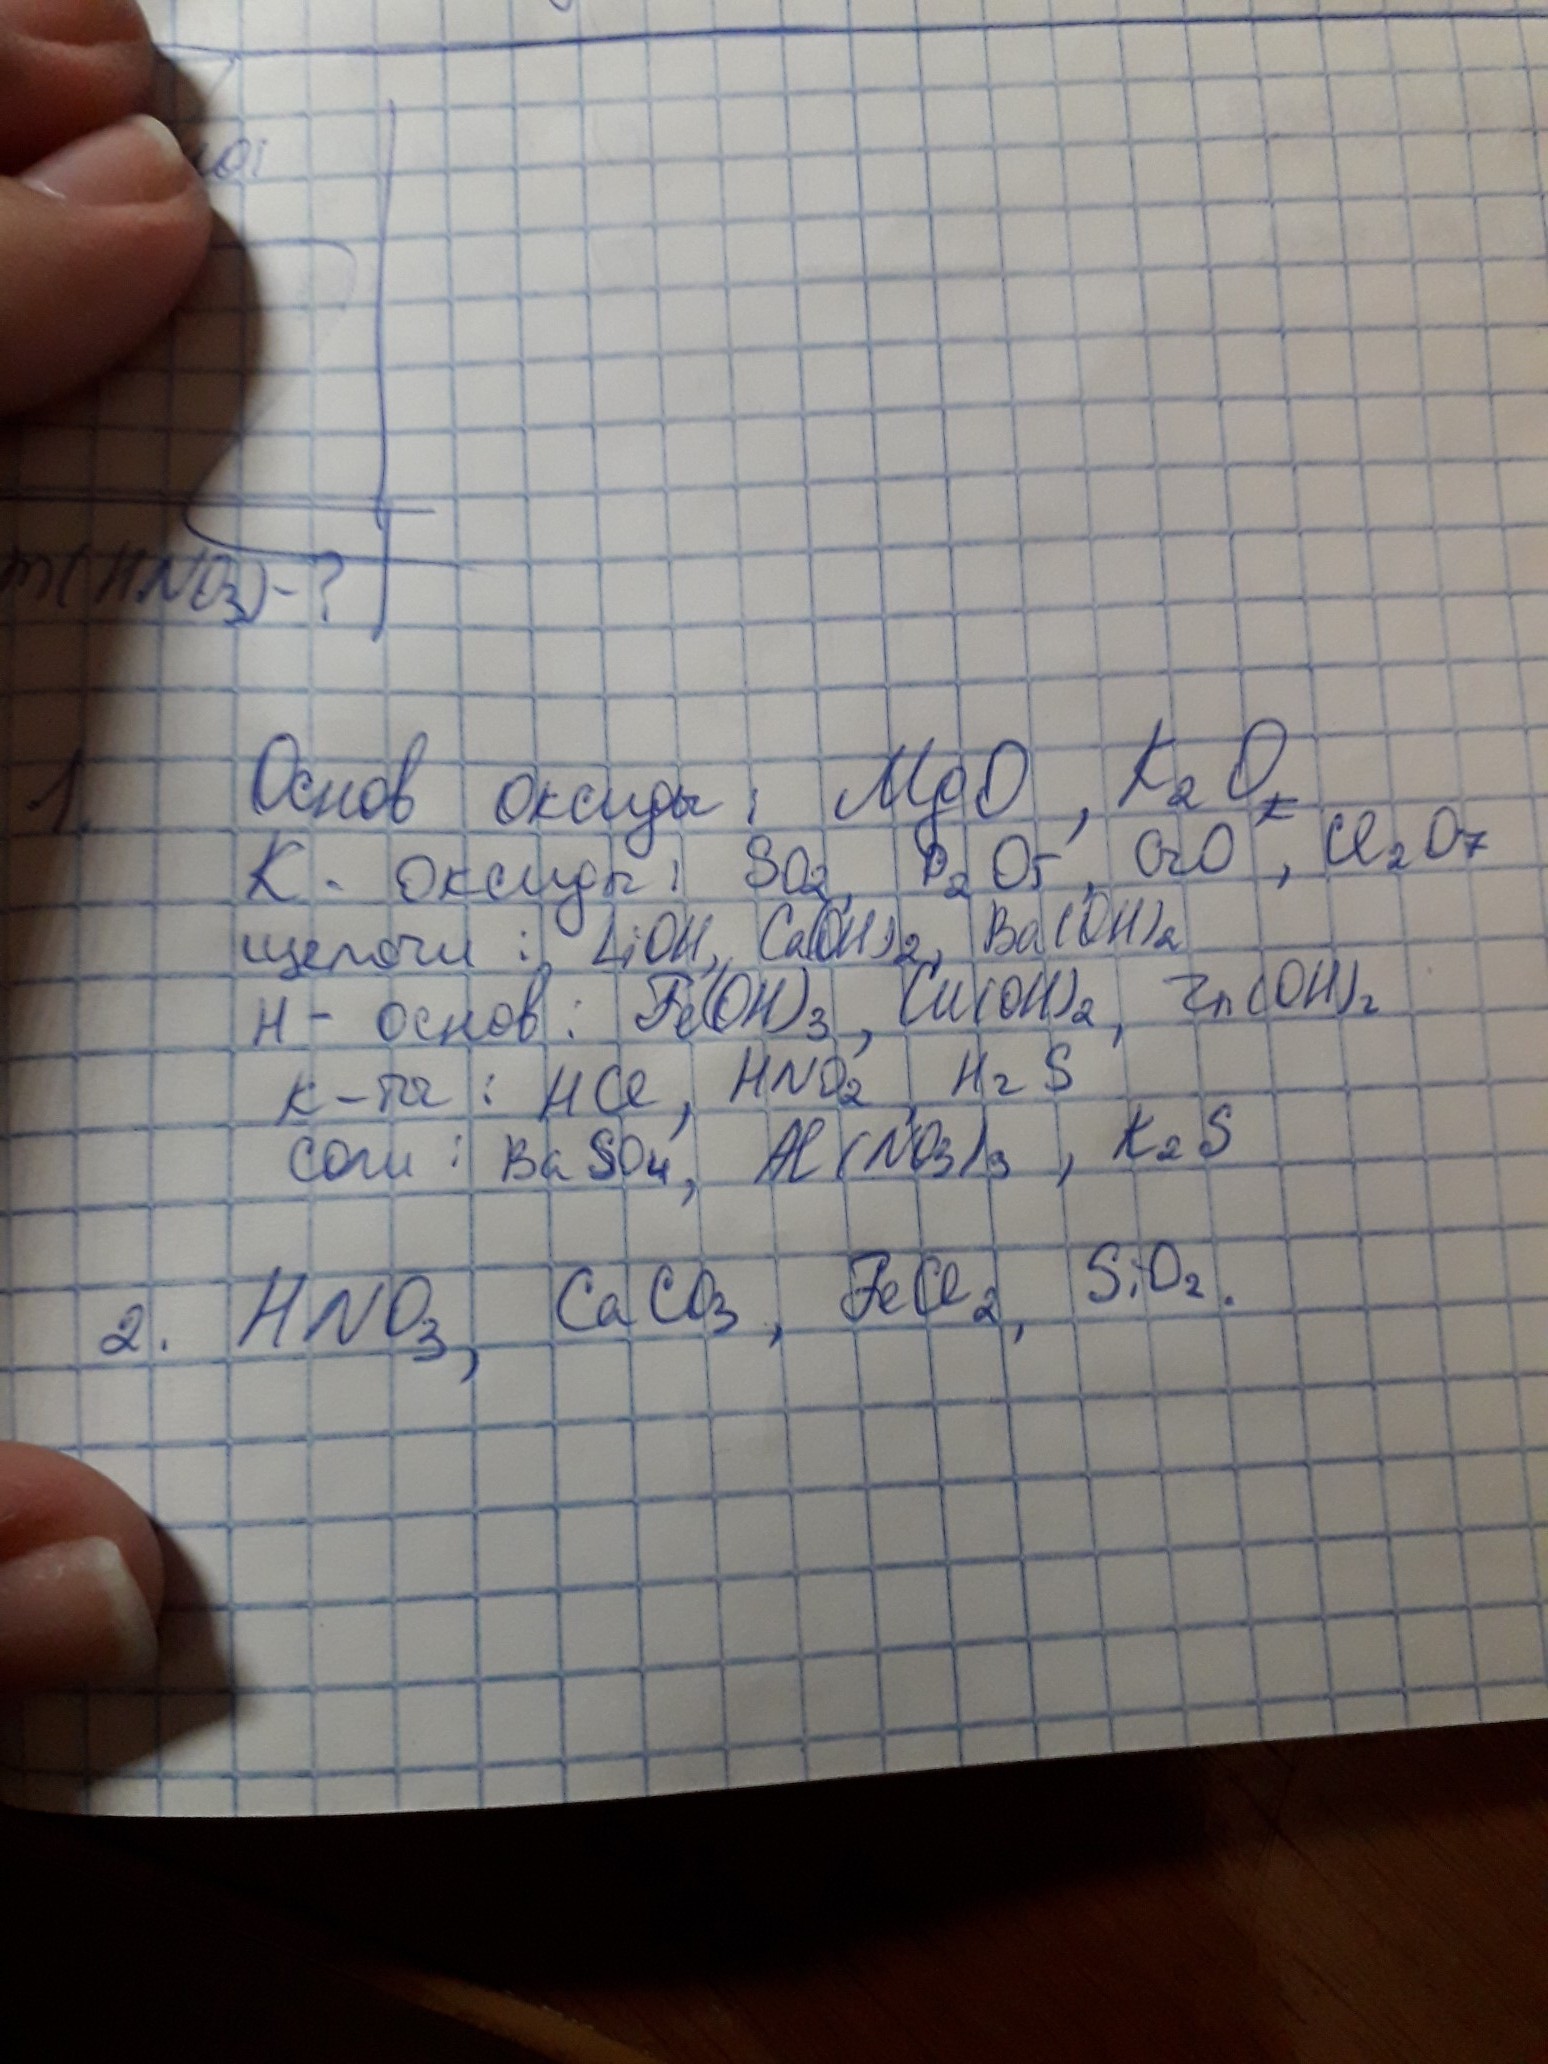 m(HNO3)-?
1. Основ оксиды: MgO, K2O
К- оксиды: SO2, P2O5, CrO, Cl2O7
щелочи: LiOH, Ca(OH)2, Ba(OH)2
Н- основ: Fe(OH)3, Cu(OH)2, Zn(OH)2
к-та: HCl, HNO2, H2S
соли: BaSO4, Al(NO3)3, K2S
2. HNO3, CaCO3, FeCl2, SiO2.